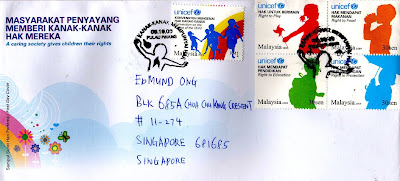 MASYARAKAT PENYAYANG
MEMBERI KANAK-KANAK
HAK MEREKA
A caring society gives children their rights
Sampul Surat Hari Pertama / First Day Cover
unicef
KONVENSYEN MENGENAI
HAK KANAK-KANAK
PULAU PINANG
unicef
HAK UNTUK BERMAIN
Right to Play
Malaysia 30sen
unicef
HAK MENDAPAT
MAKANAN
Malaysia 30sen
unicef
HAK MENDAPAT
PENDIDIKAN
Right to Education
Malaysia 30sen
unicef
HAK MENDAPAT
Malaysia 30sen
EDMUND ONG
BLK 685A CHOA CHU KANG CRESCENT
# 11-274
SINGAPORE 681685
SINGAPORE